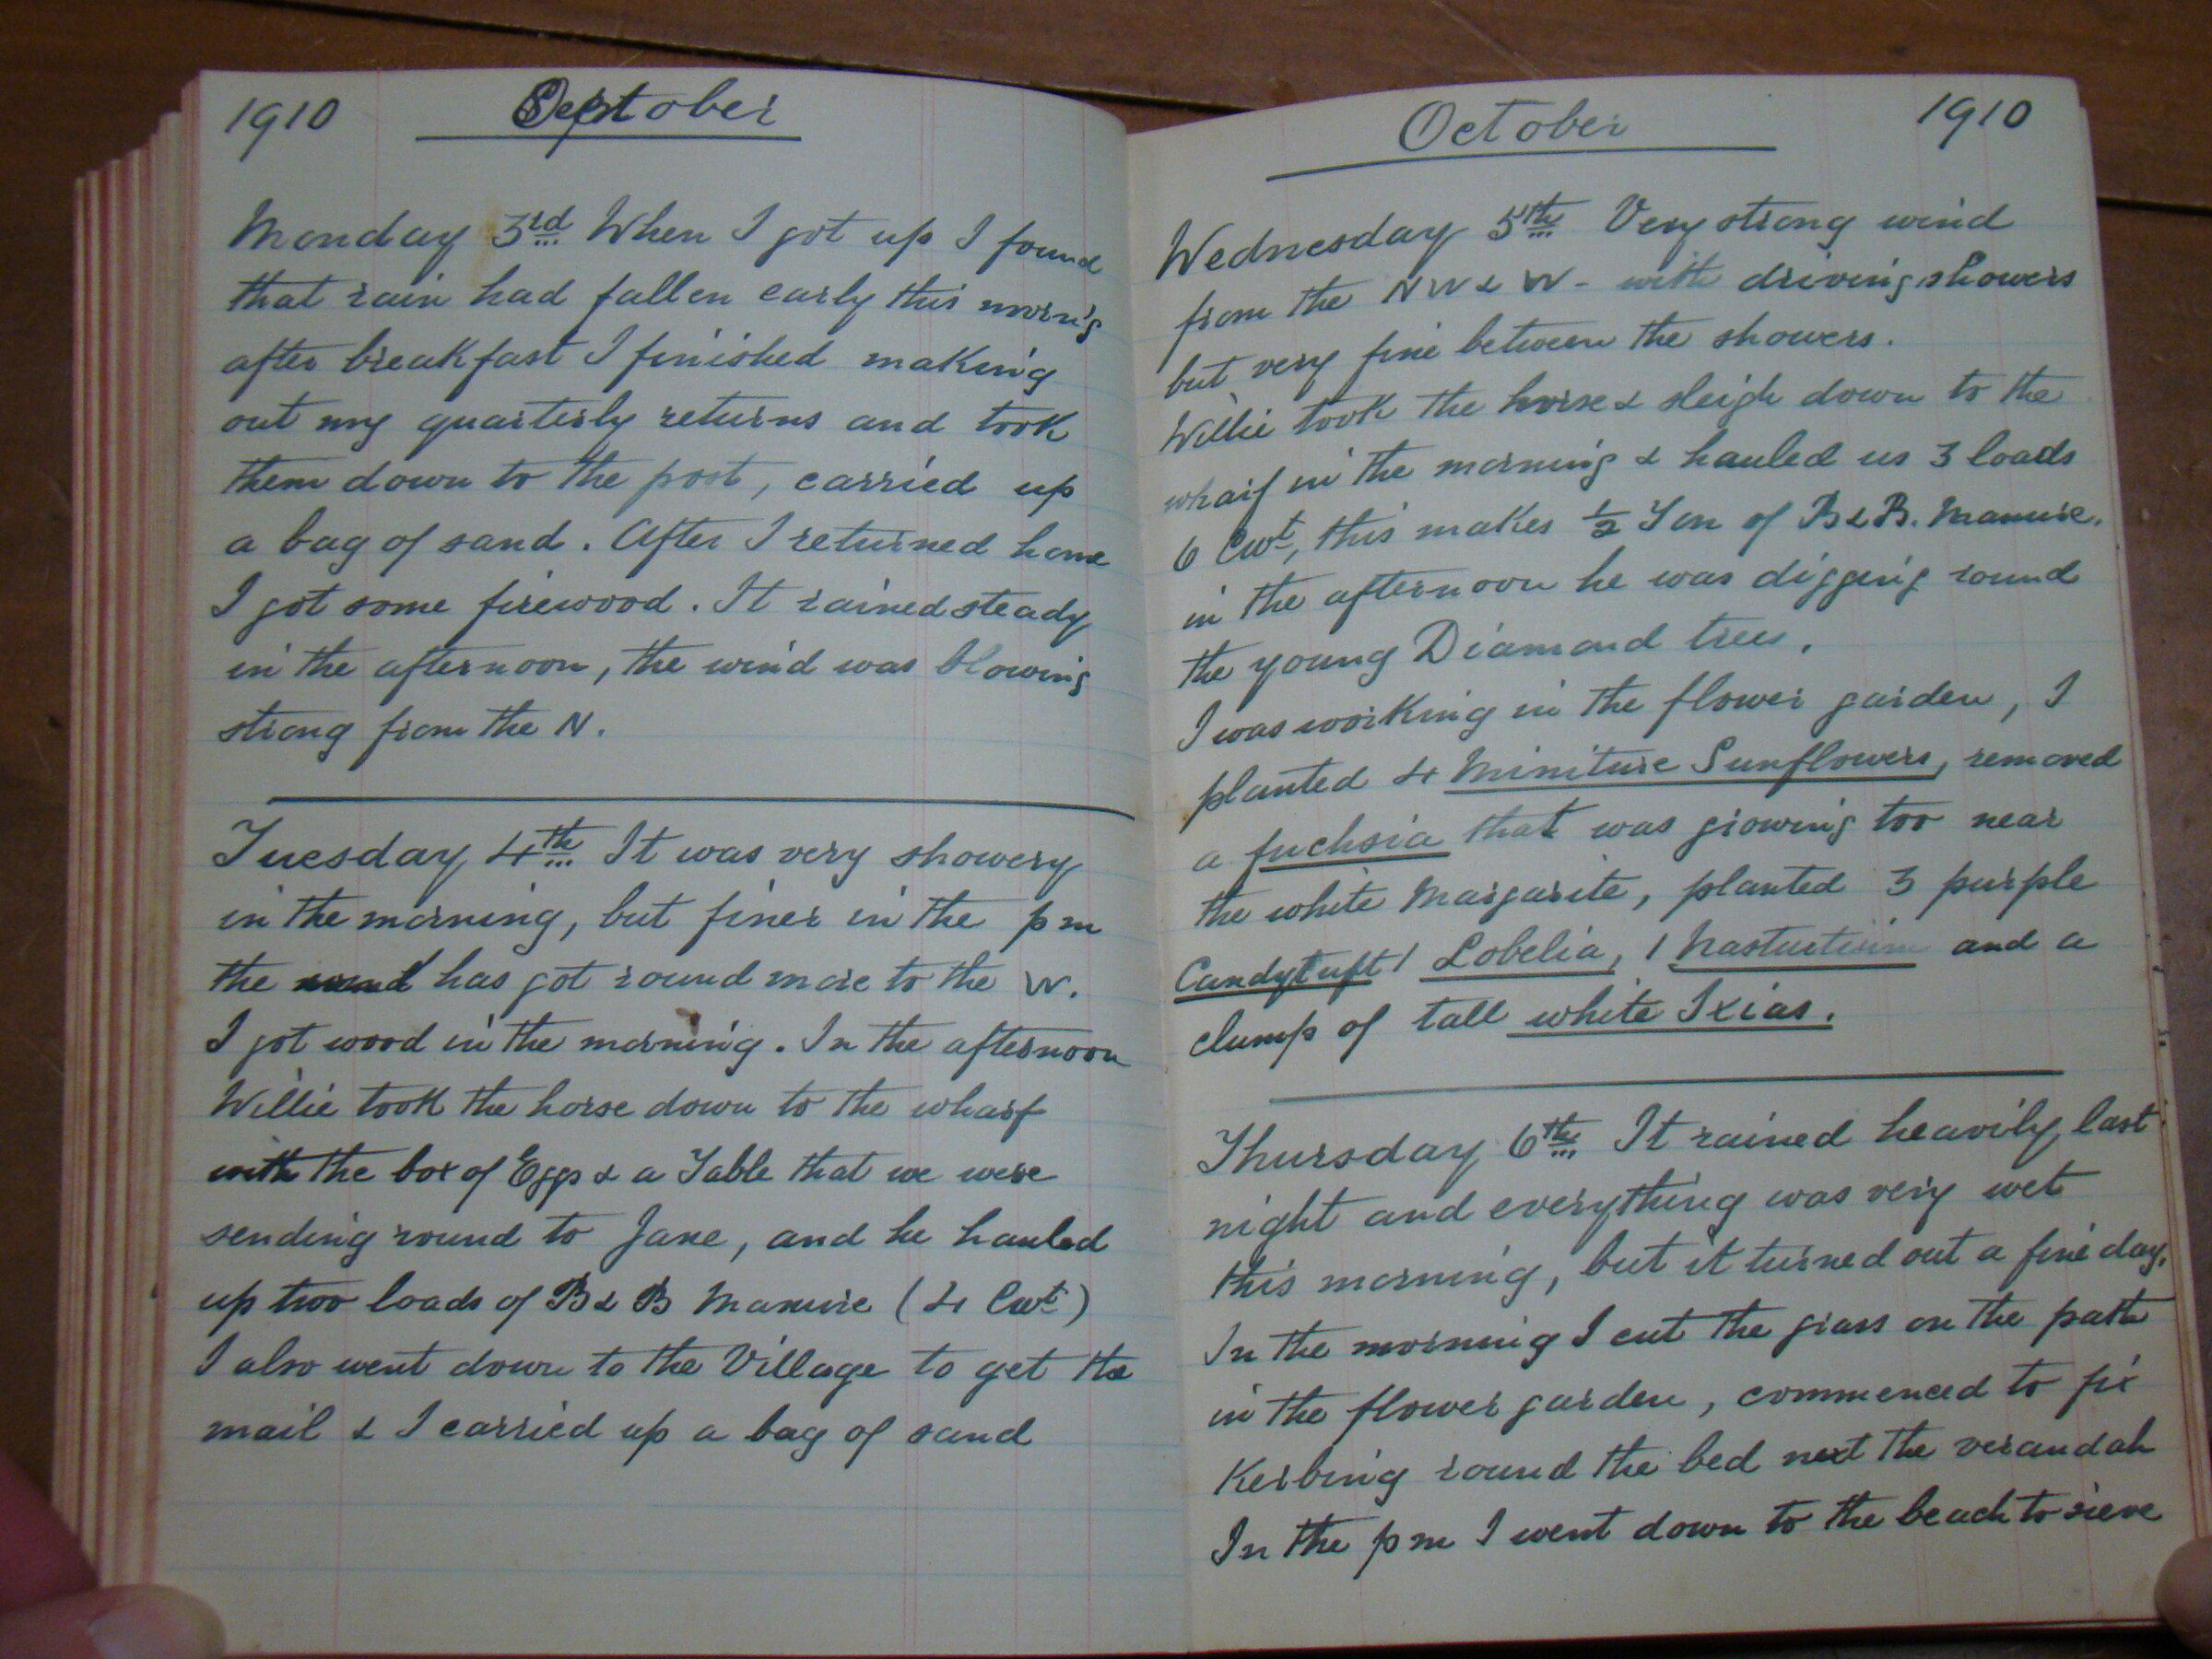 1910 October
Monday 3rd When I got up I found
that rain had fallen early this morn'g
after breakfast I finished making
out my quarterly returns and took
them down to the post, carried up
a bag of sand. After I returned home
I got some firewood. It rained steady
in the afternoon, the wind was blowing
strong from the N.
Tuesday 4th It was very showery
in the morning, but finer in the pm
the wind has got round more to the W.
I got wood in the morning. In the afternoon
Willie took the horse down to the wharf
with the box of Eggs & a Table that we were
sending round to Jane, and he hauled
up two loads of B & B Manure (4 Cwt)
I also went down to the Village to get the
mail & I carried up a bag of sand
October 1910
Wednesday 5th Very strong wind
from the NW & W - with driving showers
but very fine between the showers.
Willie took the horse & sleigh down to the
wharf in the morning & hauled us 3 loads
6 Cwt, this makes ½ Ton of B & B. Manure.
in the afternoon he was digging round
the young Diamond trees.
I was working in the flower garden, I
planted 4 Miniture Sunflowers, removed
a fuchsia that was growing too near
the white Margarite, planted 3 purple
Candytuft 1 Lobelia, 1 Nasturtium and a
clump of tall white Ixias.
Thursday 6th It rained heavily last
night and everything was very wet
this morning, but it turned out a fine day.
In the morning I cut the grass on the path
in the flower garden, commenced to fix
Kerbing round the bed next the verandah
In the pm I went down to the beach to sieve